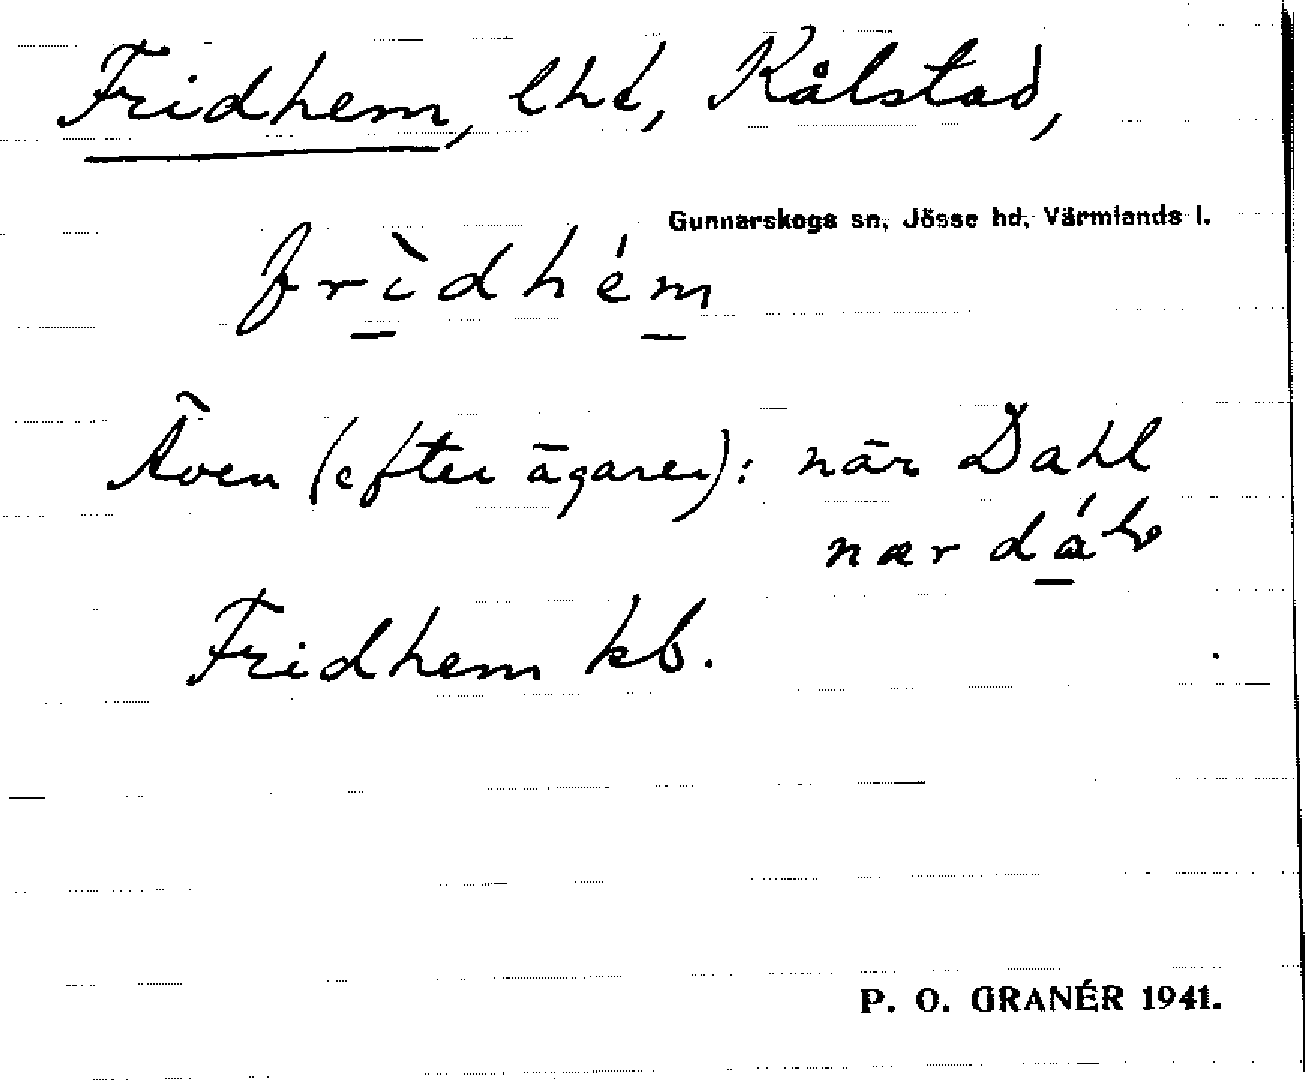 Fridhem, lht, Kålstad,
Gunnarskogs sn, Jösse hd, Värmlands l.
frìdhém
Även (efter ägaren): när Dahl
nær dá
Fridhem kb.
P. O. GRANÉR 1941.